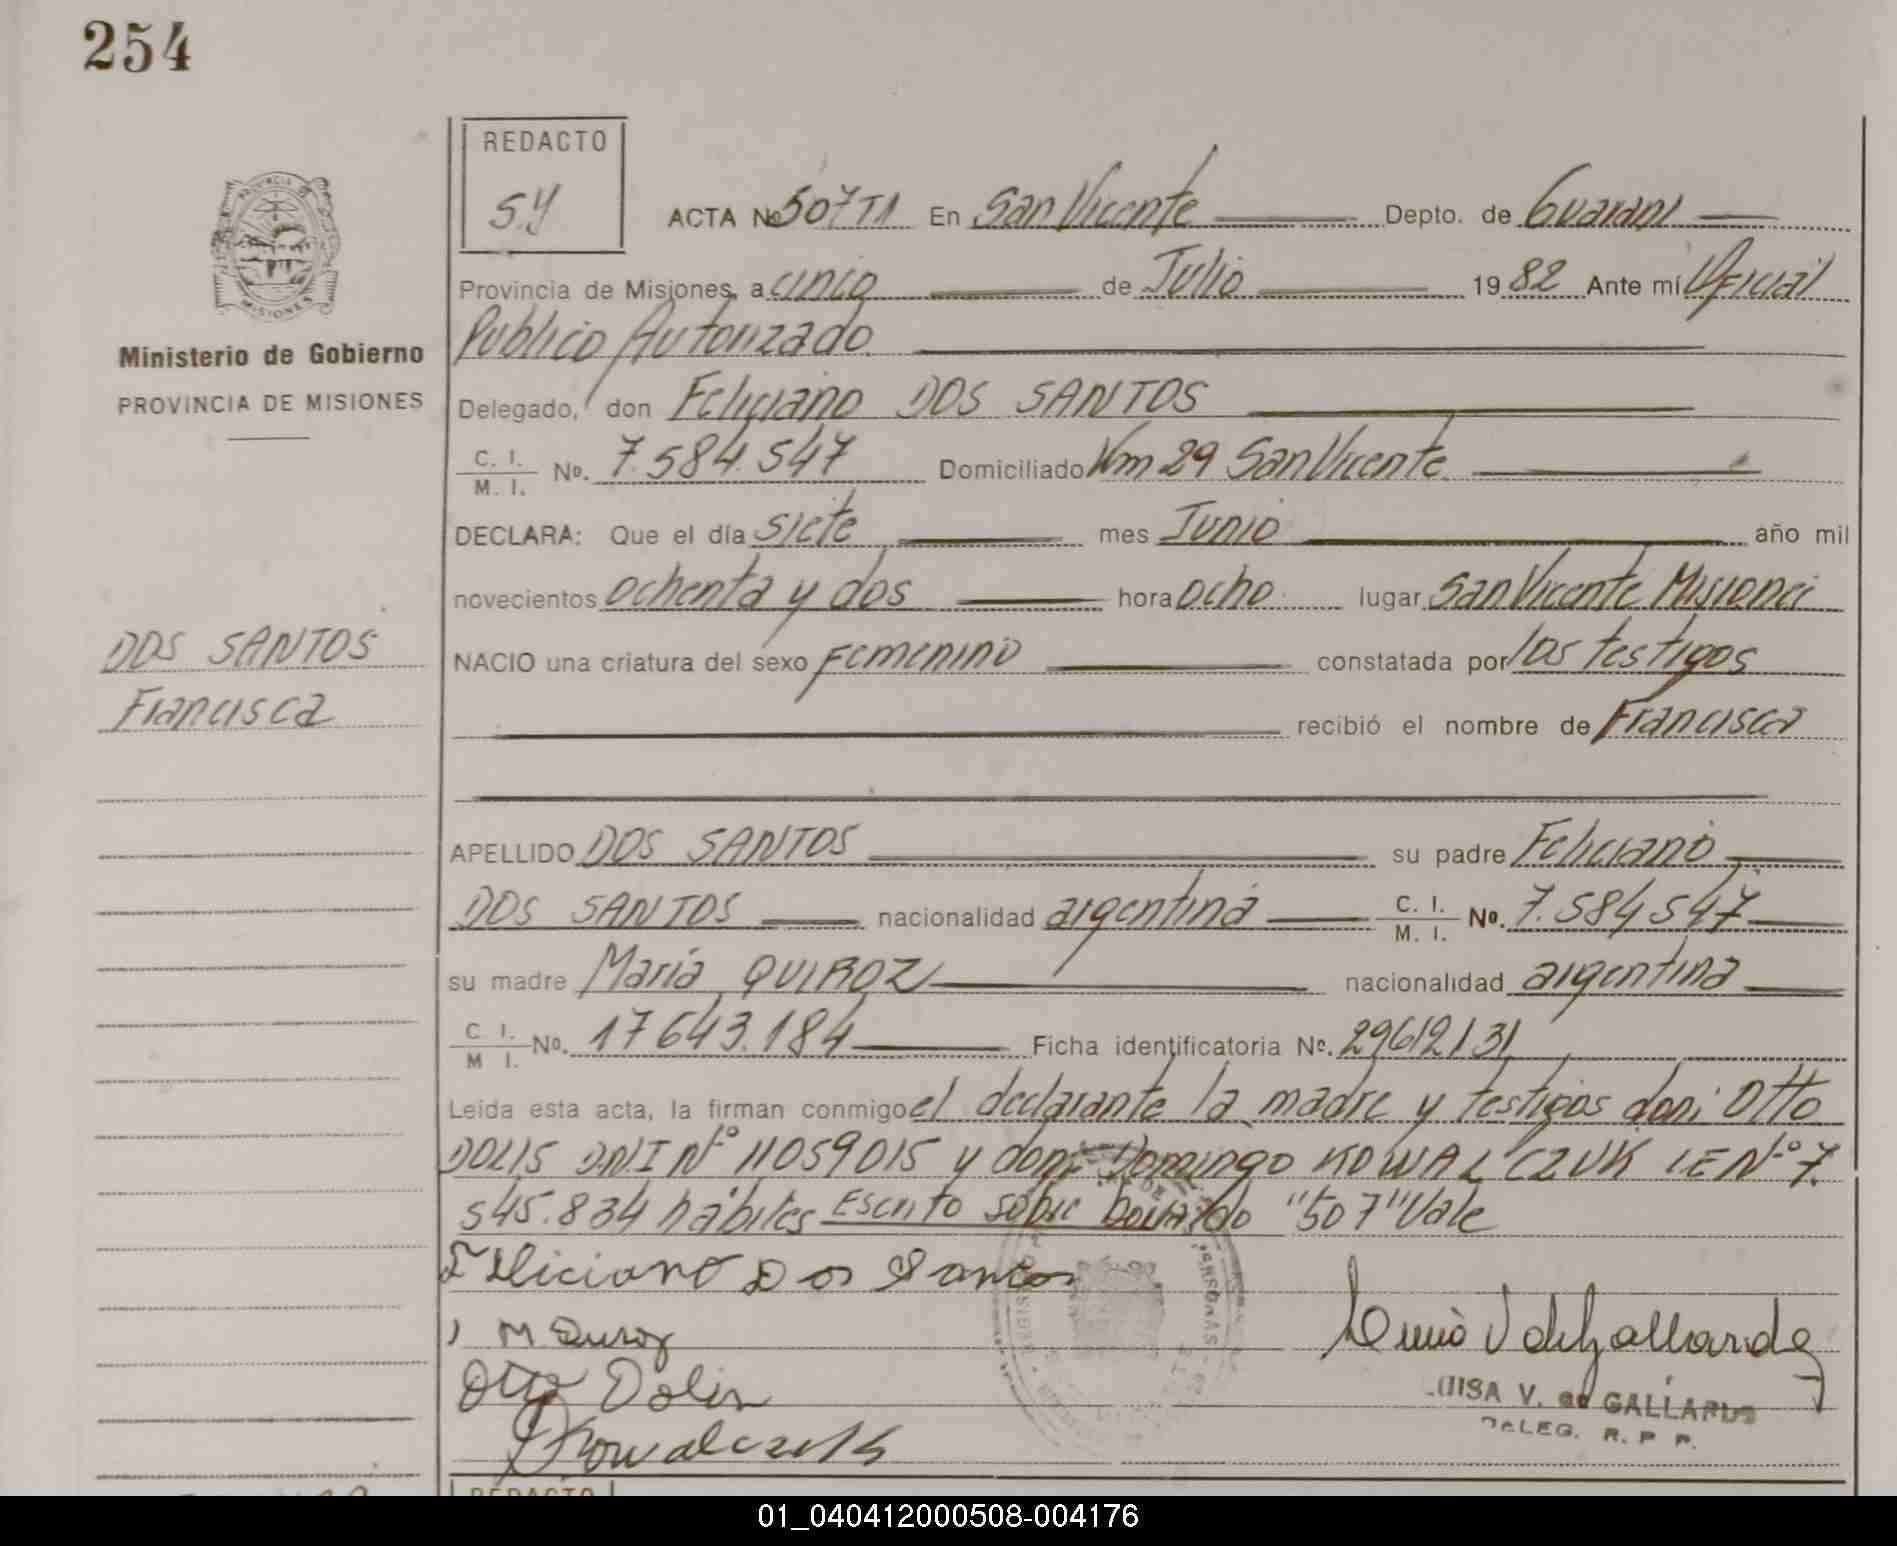 254
REDACTO
S.Y
ACTA Nº 507 T1 En San Vicente Depto. de Guarani
Provincia de Misiones, a cinco de Julio 1982 Ante mí Oficial
Publico Autorizado
Ministerio de Gobierno
PROVINCIA DE MISIONES
Delegado, don Feliciano DOS SANTOS
C. I. / M. I. Nº. 7.584.547 Domiciliado Km 29 San Vicente
DECLARA: Que el día siete mes Junio año mil
novecientos ochenta y dos hora ocho lugar San Vicente Misiones
DOS SANTOS
Francisca
NACIO una criatura del sexo femenino constatada por los testigos
recibió el nombre de Francisca
APELLIDO DOS SANTOS su padre Feliciano
DOS SANTOS nacionalidad argentina C. I. / M. I. Nº. 7.584547
su madre María QUIROZ nacionalidad argentina
C. I. / M I. Nº. 17643.184 Ficha identificatoria Nº. 29612131
Leída esta acta, la firman conmigo el declarante la madre y testigos don: Otto
DOLIS DNI Nº 11059015 y don: Domingo KOWALCZUK LE Nº 7.
545.834 hábiles Escrito sobre borrado "507" Vale
Feliciano Dos Santos
M Quiroz
Otto Dolis
D Kowalczuk
LUISA V. de GALLARDO
DELEG. R. P P.
REDACTO
01_040412000508-004176